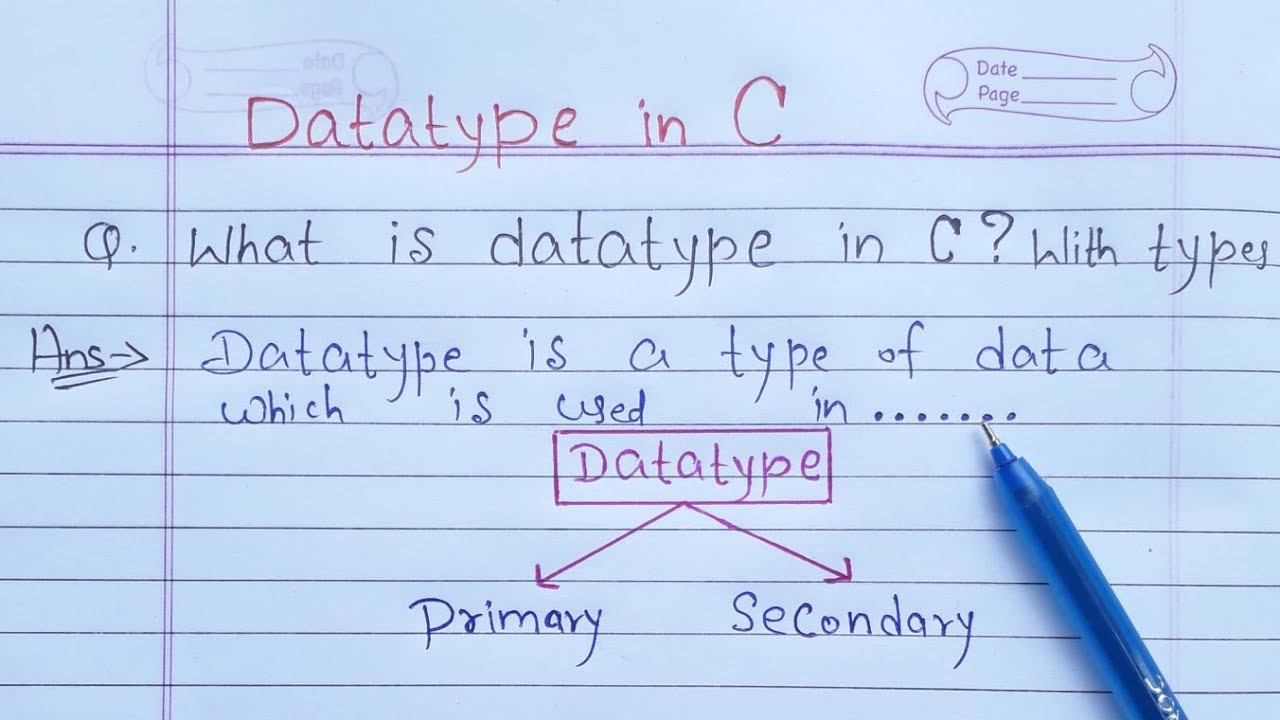 Date
Page
Datatype in C
Q. What is datatype in C? With types
Ans→ Datatype is a type of data
which is used in.......
Datatype
Primary Secondary